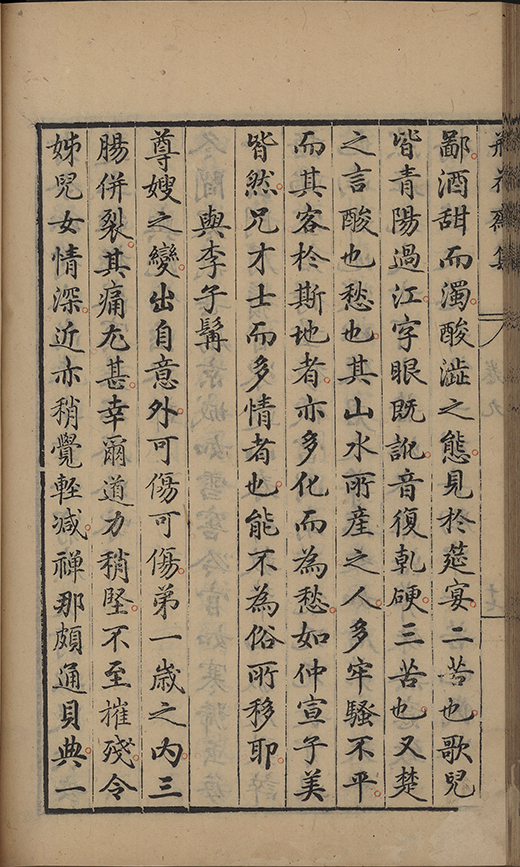 瓶花齋集 卷九
鄙酒甜而濁酸澁之態見於筵宴二苦也歌兒
皆青陽過江字眼既訛音復乹硬三苦也又楚
之言酸也愁也其山水所產之人多牢騷不平
而其客於斯地者亦多化而為愁如仲宣子美
皆然兄才士而多情者也能不為俗所移耶
與李子髯
尊嫂之變出自意外可傷可傷弟一歲之内三
腸併裂其痛尤甚幸爾道力稍堅不至摧殘令
姊兒女情深近亦稍覺輕减禅那頗通貝典一